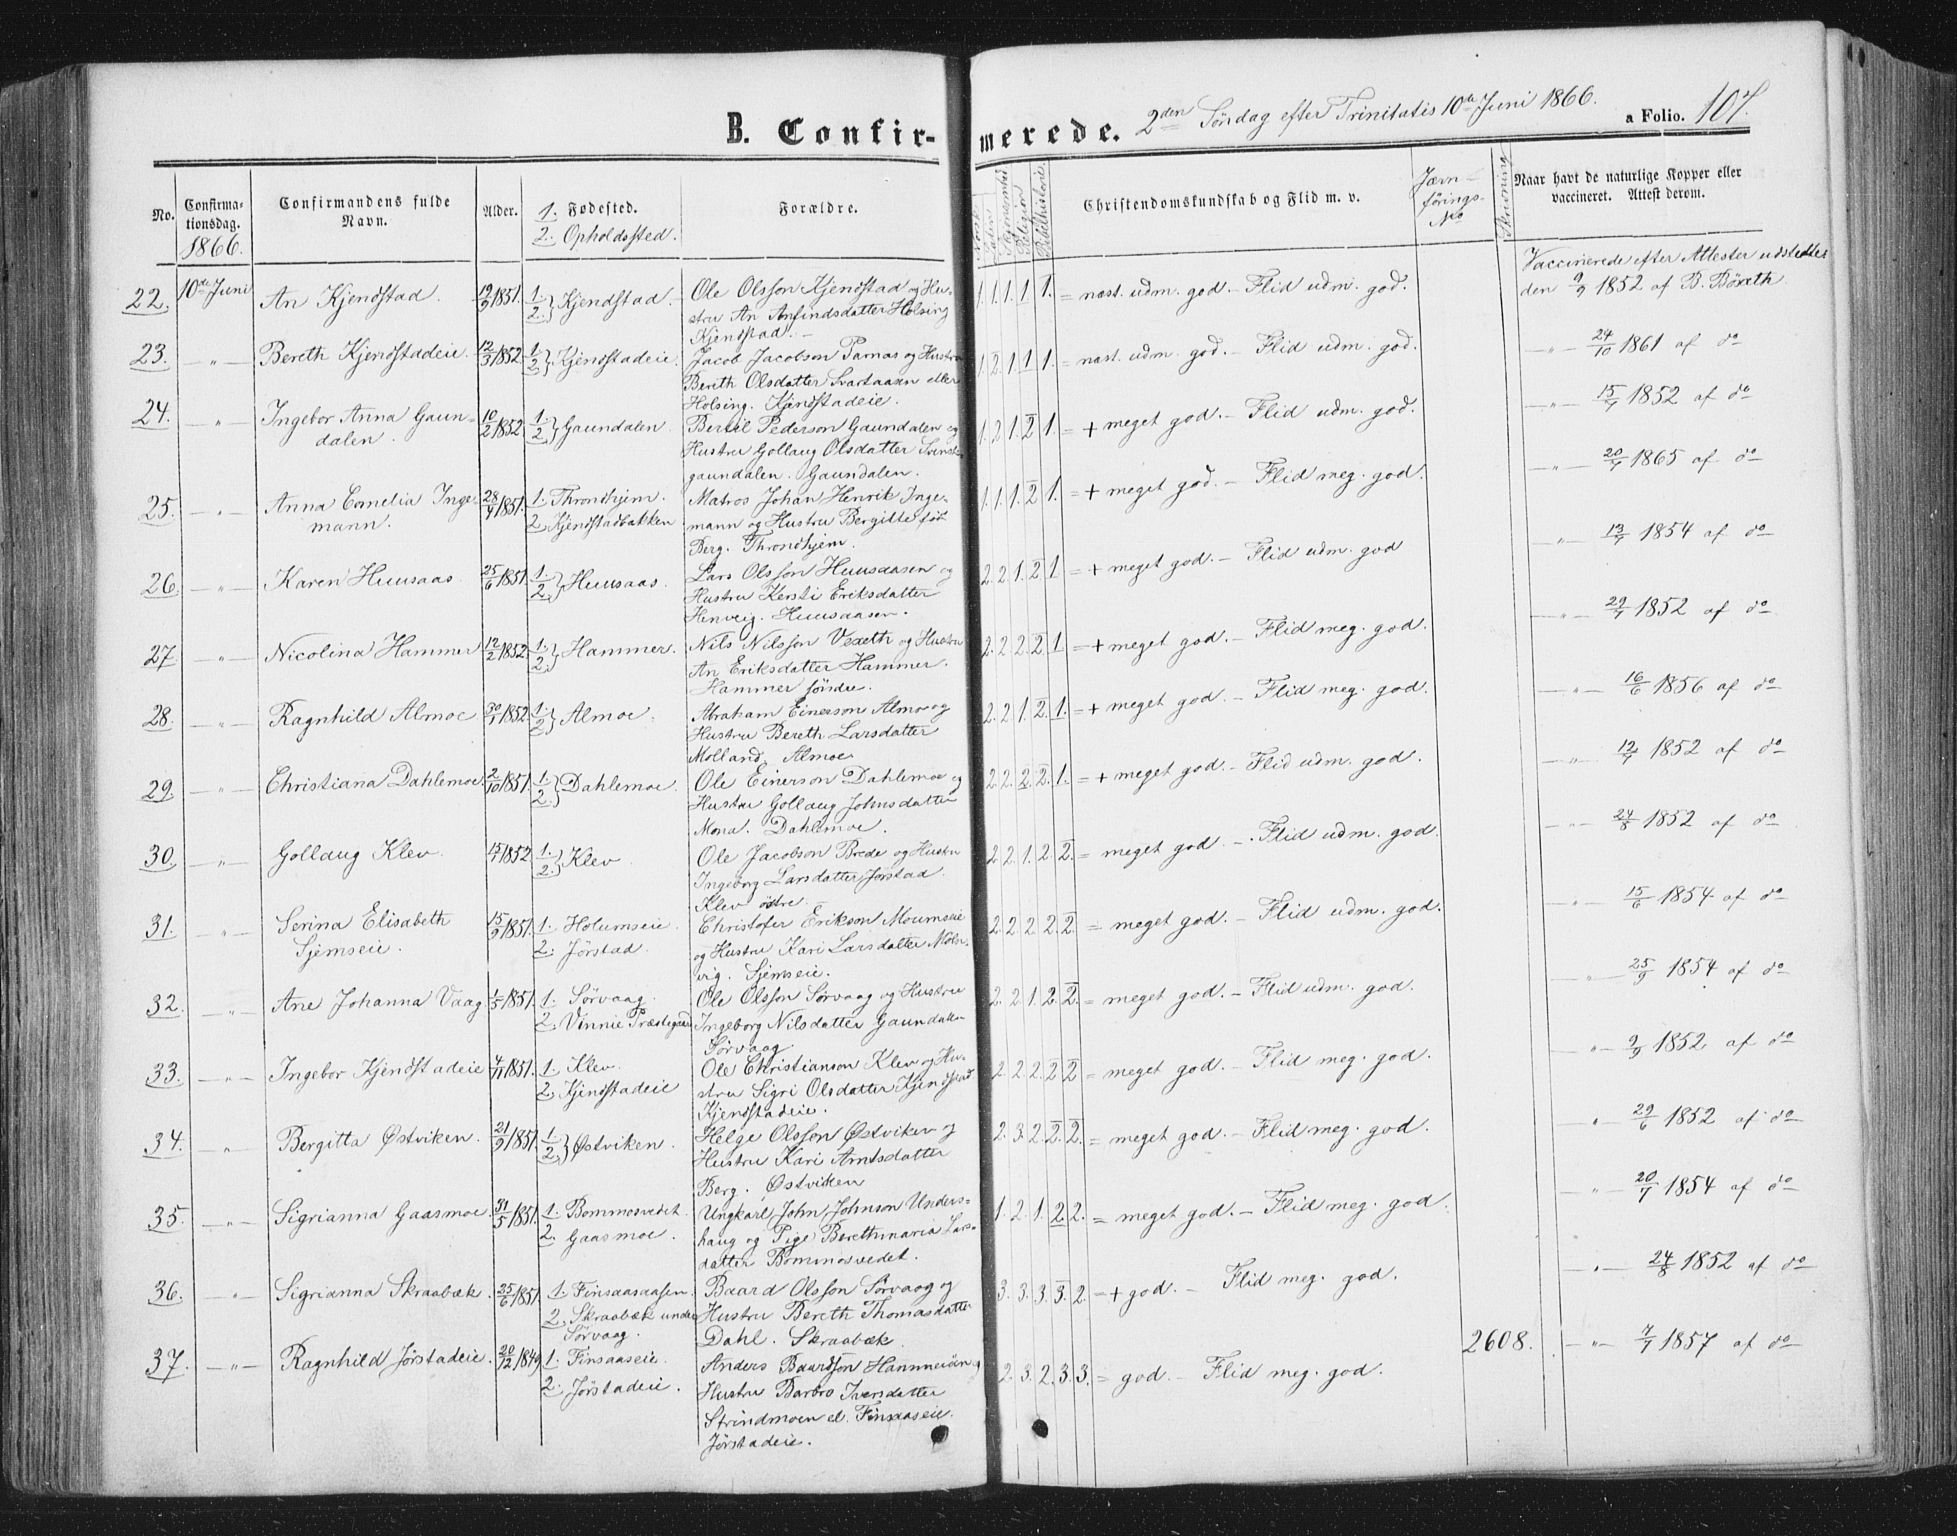 B. Confirmerede. 2den Søndag efter Trinitatis 10de Juni 1866. a Folio. 107.
No. Confirmationsdag. 1866. Confirmandens fulde Navn. Alder. 1. Fødested. 2. Opholdssted. Forældre. Religion Bibelhistorie Christendomskundskab og Flid m. v. Jævnførings-No Naar havt de naturlige Kopper eller vaccineret. Attest derom.
Vaccinerede efter Attester udstedte
22. 10de Juni An Kjendstad. 19/9 1851. 1. 2. } Kjendstad. Ole Olsson Kjendstad og Hu- 1. 1. 1. 1. 1. = næst. udm. god - Flid udm. god. den 9/9 1852 af B. Böreth
stru An Anfindsdatter Holsing
Kjendstad. -
23. -"- Bereth Kjendstadeie. 12/3 1852 1. 2. } Kjendstadeie. Jacob Jacobson Parnas og Hustru 1. 2. 1. 1. 1. = næst. udm. god. - Flid udm. god. -"- 24/10 1861 af do
Bereth Olsdatter Svartaasen eller
Holsing. Kjendstadeie.
24. " Ingebor Anna Gaun- 10/2 1852 1. 2. } Gaundalen Bertil Pederson Gaundalen og 1. 2. 1. 2. 1. = + meget god. - Flid udm. god. -"- 15/7 1852 af do
dalen. Hustru Gollaug Olsdatter
gaundalen. Gaundalen.
25. -"- Anna Cornelia Inge- 28/4 1851. 1. Throndhjem. Matros Johan Henrik Inge- 1. 1. 1. 2. 1. = + meget god. - Flid meg. god. -"- 20/7 1865 af do
mann. 2. Kjendstadbakken mann og Hustru Bergitte föt
Berg. Throndhjem.
26. -"- Karen Huusaas 25/6 1851. 1. 2. } Huusaas. Lars Olsson Huusaasen og 2. 2. 1. 2. 1. = + meget god. - Flid udm. god -"- 13/7 1854 af do
Hustru Kersti Eriksdatter
Henveig. Huusaasen.
27. -"- Nicolina Hammer 12/2 1852. 1. 2. } Hammer. Nils Nilsson Vexeth og Hustru 2. 2. 2. 2. 1. = + meget god. - Flid meg. god. -"- 29/7 1852 af do
An Eriksdatter Hammer.
Hammer søndre.
28. -"- Ragnhild Almoe 30/1 1852. 1. 2. } Almoe. Abraham Einerson Almo og 2. 2. 1. 2. 1. = + meget god. - Flid meg. god. -"- 16/6 1856 af do
Hustru Bereth Larsdatter
Molland, Almoe
29. -"- Christiana Dahlemoe. 2/10 1851. 1. 2. } Dahlemoe. Ole Einerson Dahlemoe og 2. 2. 2. 2. 1. = + meget god. - Flid udm. god. -"- 12/7 1852 af do
Hustru Gollaug Johnsdatter
Mona. Dahlemoe.
30. -"- Gollaug Klev 1852 1. 2. } Klev Ole Jacobson Brede og Hustru 2. 2. 1. 2. 2. = meget god - Flid udm. god. -"- 24/8 1852 af do
Ingeborg Larsdatter Jørstad.
Klev østre.
31. -"- Serina Elisabeth 15/9 1851. 1. Holumseie. Christofer Erikson Moumseie 2. 2. 2. 2. 2. = meget god. - Flid udm. god. -"- 15/6 1854 af do
Sjemseie. 2. Jørstad. og Hustru Kari Larsdatter Møln-
vig. Sjemseie.
32. -"- Ane Johanna Vaag 1/5 1851. 1. Sørvaag. Ole Olsson Sørvaag og Hustru 2. 2. 1. 2. 2. = meget god. - Flid udm. god. -"- 25/9 1854 af do
2. Vinnie Præstegaard Ingeborg Nilsdatter Gaundalen
Sørvaag.
33. -"- Ingebor Kjendstadeie 4/11 1851. 1. Klev. Ole Christianson Klev og Hu- 2. 2. 2. 2. 2 = meget god. - Flid meg. god. -"- 9/9 1852 af do
2. Kjendstadeie stru Sigri Olsdatter Kjendstad
Kjendstadeie.
34. -"- Bergitta Østviken. 21/9 1851. 1. 2. } Østviken. Helge Olsson Østviken og 2. 3. 2. 2. 2. = meget god. - Flid meg. god. -"- 29/6 1852 af do
Hustru Kari Arntsdatter
Berg. Østviken
35. -"- Sigrianna Gaasmoe. 31/5 1851. 1. Bommosvedet. Ungkarl John Johnson Unders- 1. 2. 1. 2. 2. = meget god. - Flid meg. god. -"- 20/7 1854 af do
2. Gaasmoe. haug og Pige Berethmaria Lars-
datter Bommosvedet.
36. -"- Sigrianna Skraabæk. 25/6 1851. 1. Finsaasaasen. Baard Olsson Sørvaag og 3. 3. 3. 3. 2. = + god. - Flid meg. god. -"- 24/8 1852 af do
2. Skraabæk under Hustru Bereth Thomasdatter
Sørvaag. Dahl. Skraabæk
37. -"- Ragnhild Jørstadeie. 20/12 1849 1. Finsaaseie. Anders Baardson Hammerøen og 2. 3. 2. 3. 3. = god. - Flid meg. god. 2608. -"- 7/7 1857 af do
2. Jørstadeie. Hustru Barbro Iversdatter
Strindmoen el. Finsaaseie.
Jørstadeie.